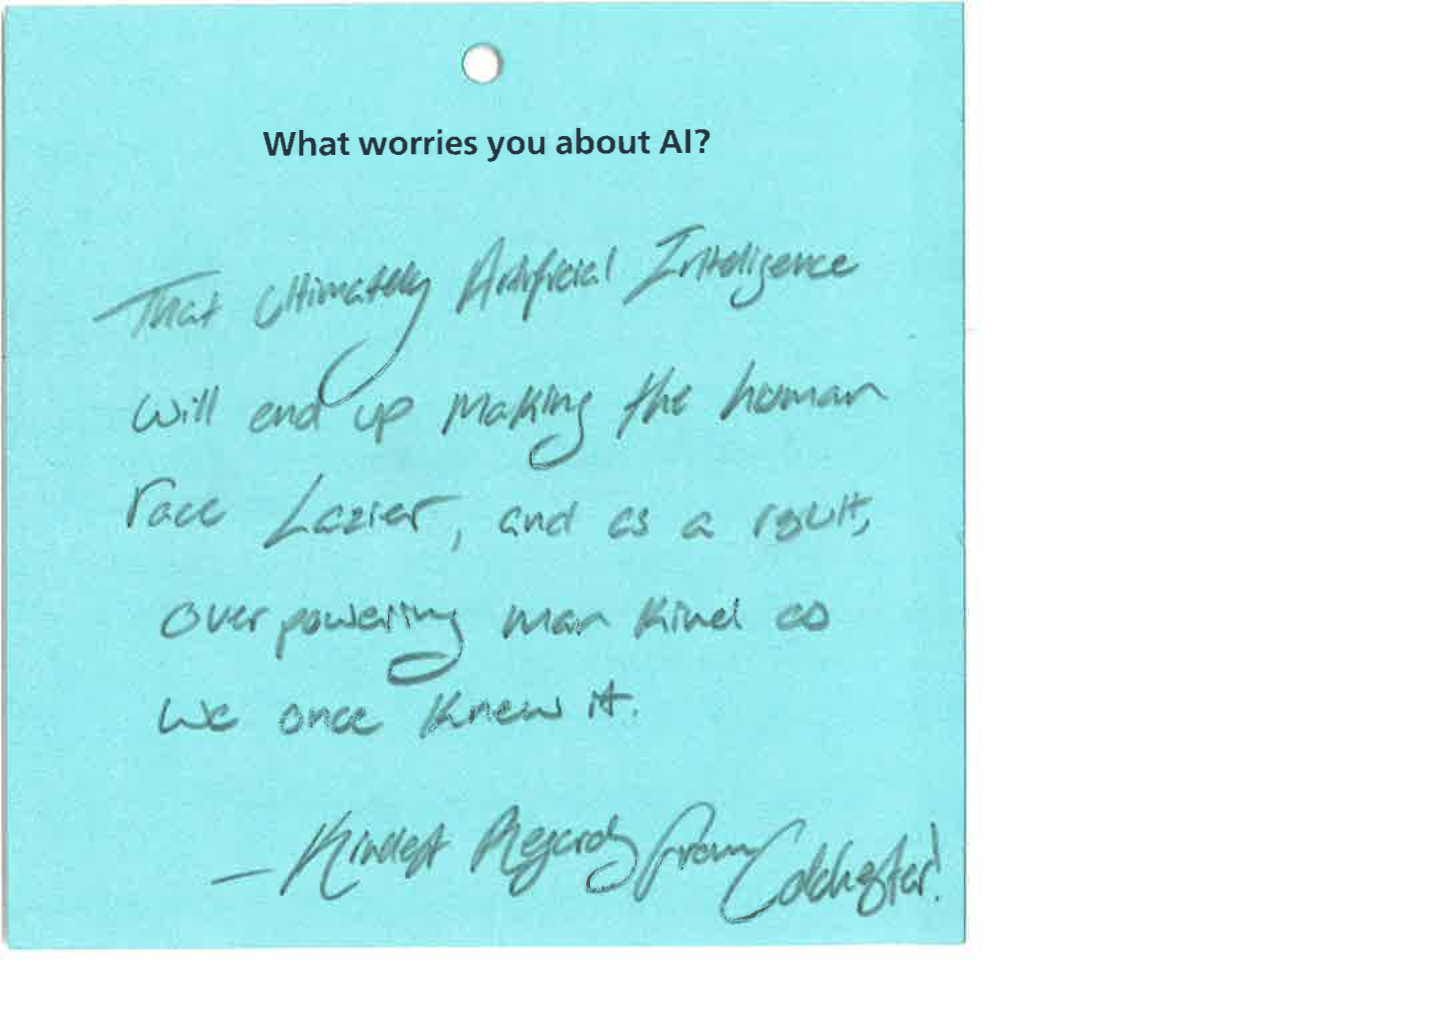 What worries you about AI?
That Ultimately Artificial Intelligence
will end up making the human
race Lazier, and as a result,
overpowering man kind as
we once knew it.
— Kindest Regards from Colchester!